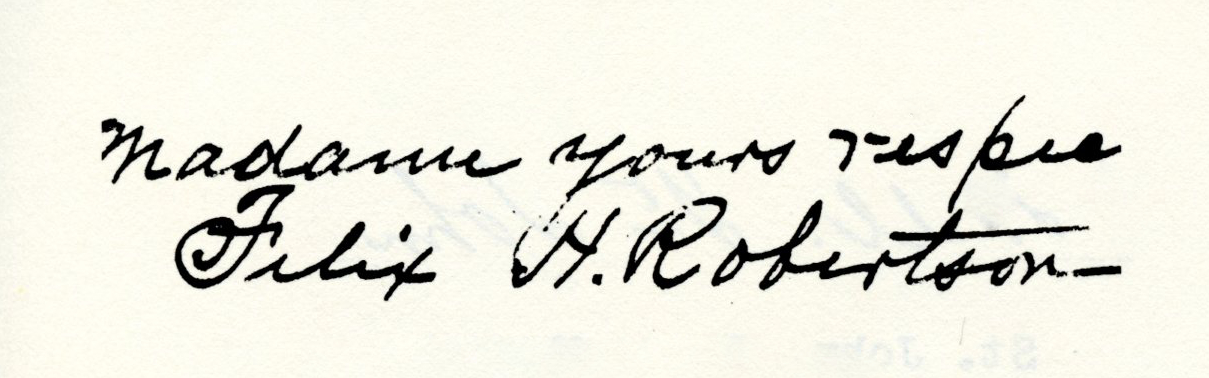 Madame yours respec
Felix H. Robertson—